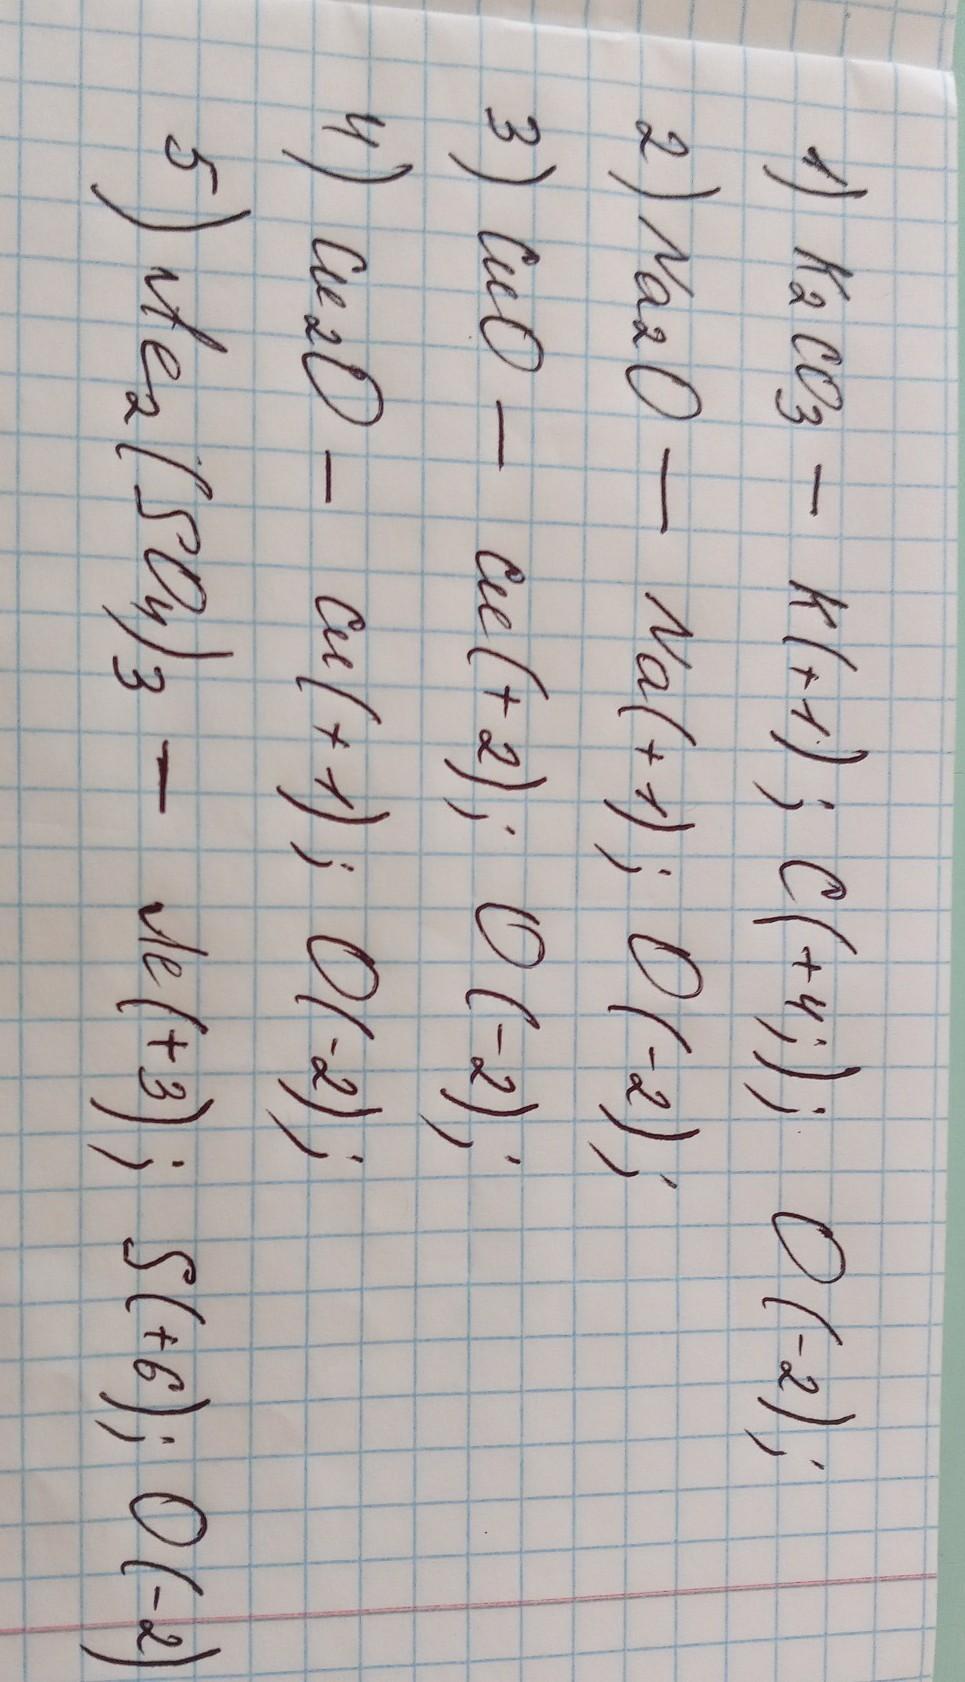 1) K2CO3 - K(+1); C(+4;); O(-2);
2) Na2O - Na(+1); O(-2);
3) CuO - Cu(+2); O(-2);
4) Cu2O - Cu(+1); O(-2);
5) Fe2(SO4)3 - Fe(+3); S(+6); O(-2)